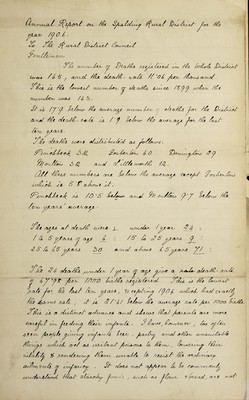 Annual Report on the Spalding Rural District for the
year 1906.
To The Rural District Council
Gentlemen
The number of Deaths registered in the whole District
was 165, and the death rate 11.06 per thousand
This is the lowest number of deaths since 1899 when the
number was 163.
It is 17.9 below the average number of deaths for the District
and the death rate is 1.9 below the average for the last
ten years.
The deaths were distributed as follows.
Pinchbeck 32 Gosberton 40 Donington 29
Moulton 52 and Tittleworth 12.
All these numbers are below the average except Gosberton
which is 5.8 above it.
Pinchbeck is 10.3 below and Moulton 9.7 below the
ten years' average
The ages at death were: under 1 year 24:
1 to 5 years of age 6: 15 to 25 years 9:
25 to 65 years 30 and above 65 years 71:
The 24 deaths under 1 year of age give a death rate
of 67.98 per 1000 births registered. This is the lowest
rate for the last ten years, excepting 1904 which had exactly
the same rate; it is 21.21 below the average rate per 1000 births
This is a distinct advance and shews that parents are more
careful in feeding their infants. I have, however, too often
seen people giving infants beer, pastry and other unsuitable
things which act as irritant poisons to them, lowering their
vitality & rendering them unable to resist the ordinary
ailments of infancy. It does not appear to be commonly
understood that starchy foods, such as flour, bread, are not